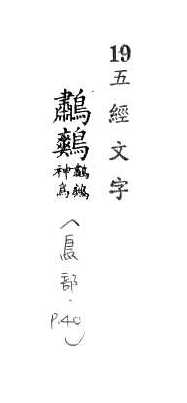 19 五經文字
鷫鷞 鷫鷞
神鳥
〈鳥部．P.40〉